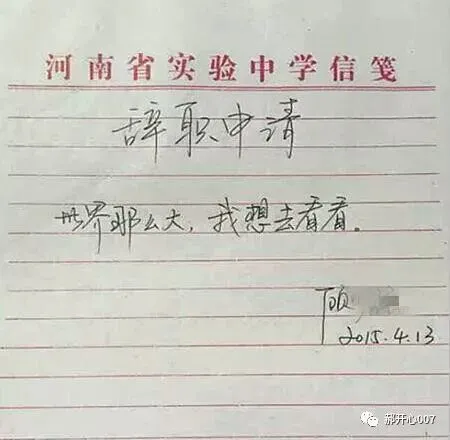 河南省实验中学信笺
辞职申请
世界那么大，我想去看看。
顾
2015.4.13
郝开心007